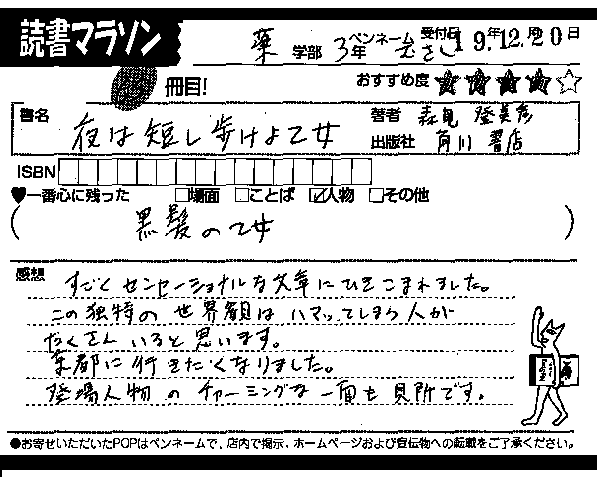 読書マラソン
薬 学部 3年 ペンネーム 受付日 19年12月20日
冊目! おすすめ度 ★★★★☆
書名 夜は短し歩けよ乙女 著者 森見登美彦
出版社 角川書店
ISBN
♥一番心に残った □場面 □ことば ☑人物 □その他
(黒髪の乙女)
感想 すごくセンセーショナルな文章にひきこまれました。
この独特の世界観はハマってしまう人が
たくさんいると思います。
京都に行きたくなりました。
登場人物のチャーミングな一面も見所です。
●お寄せいただいたPOPはペンネームで、店内で掲示、ホームページおよび宣伝物への転載をご了承ください。